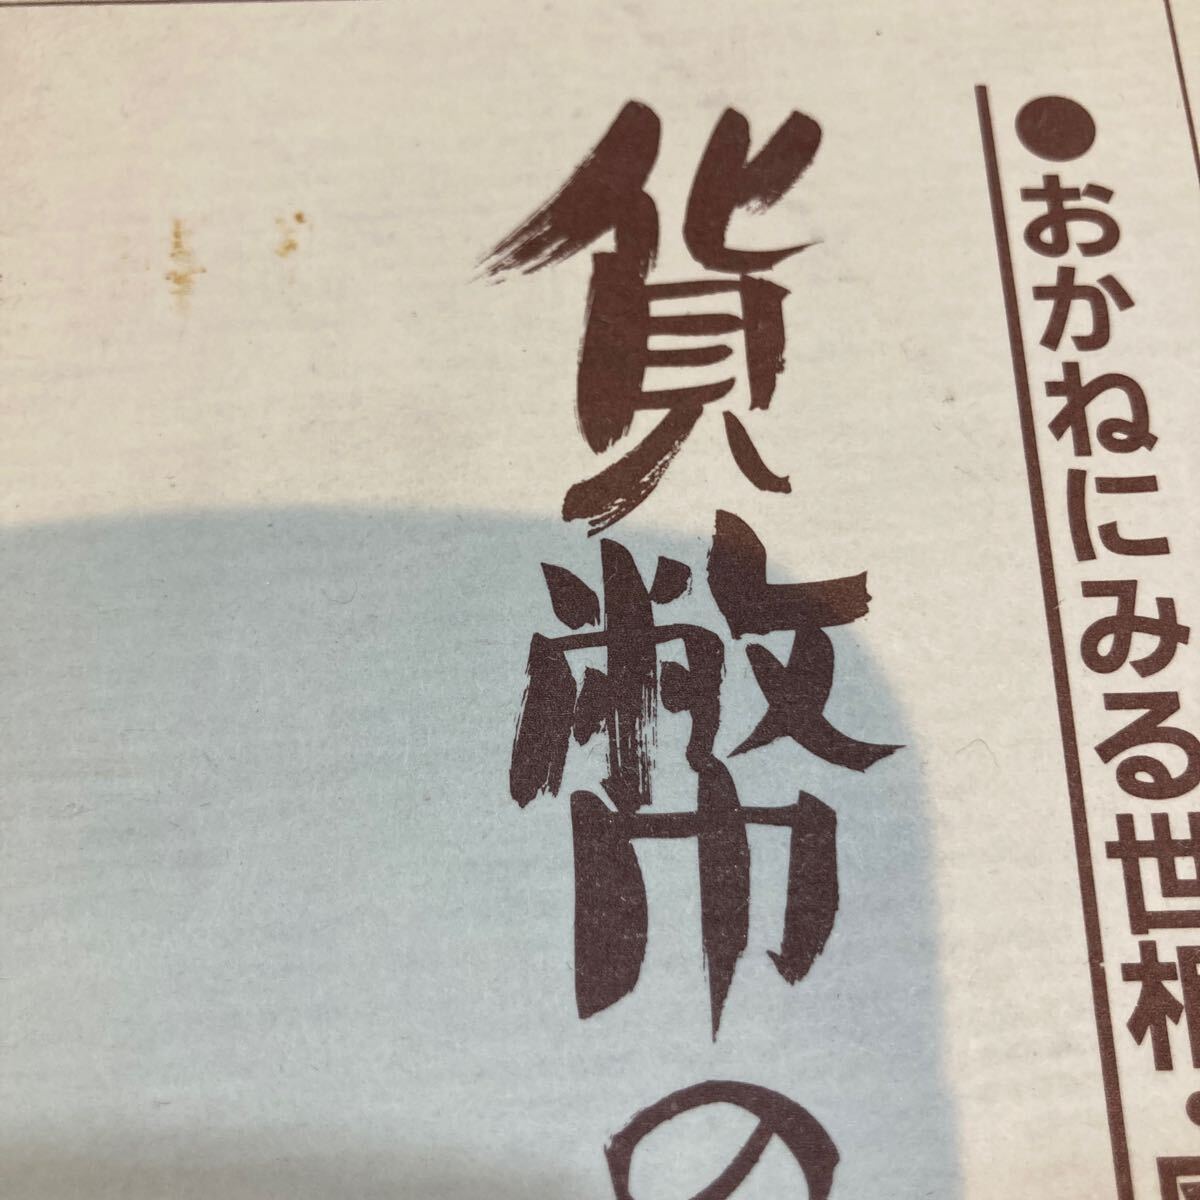 ●おかねにみる世相・
貨幣の